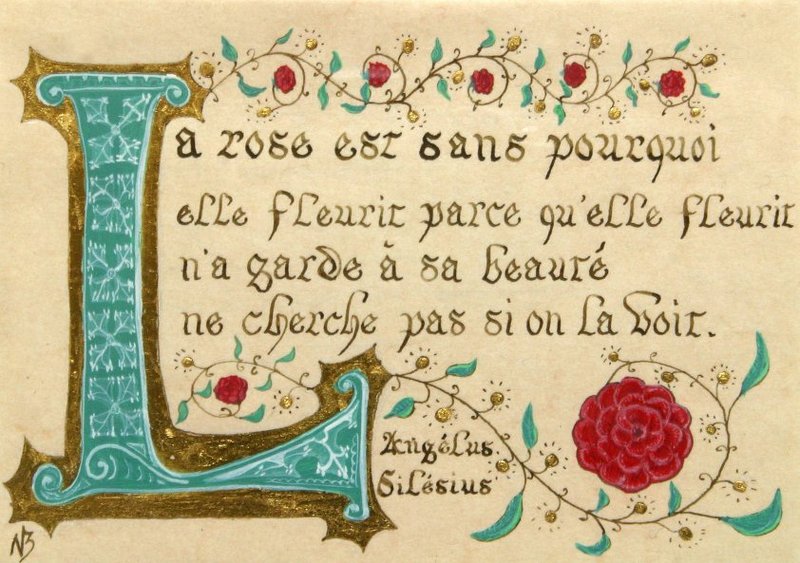 La rose est sans pourquoi
elle fleurit parce qu'elle fleurit
n'a garde à sa beauté
ne cherche pas si on la voit.
Angélus
Silésius
NB